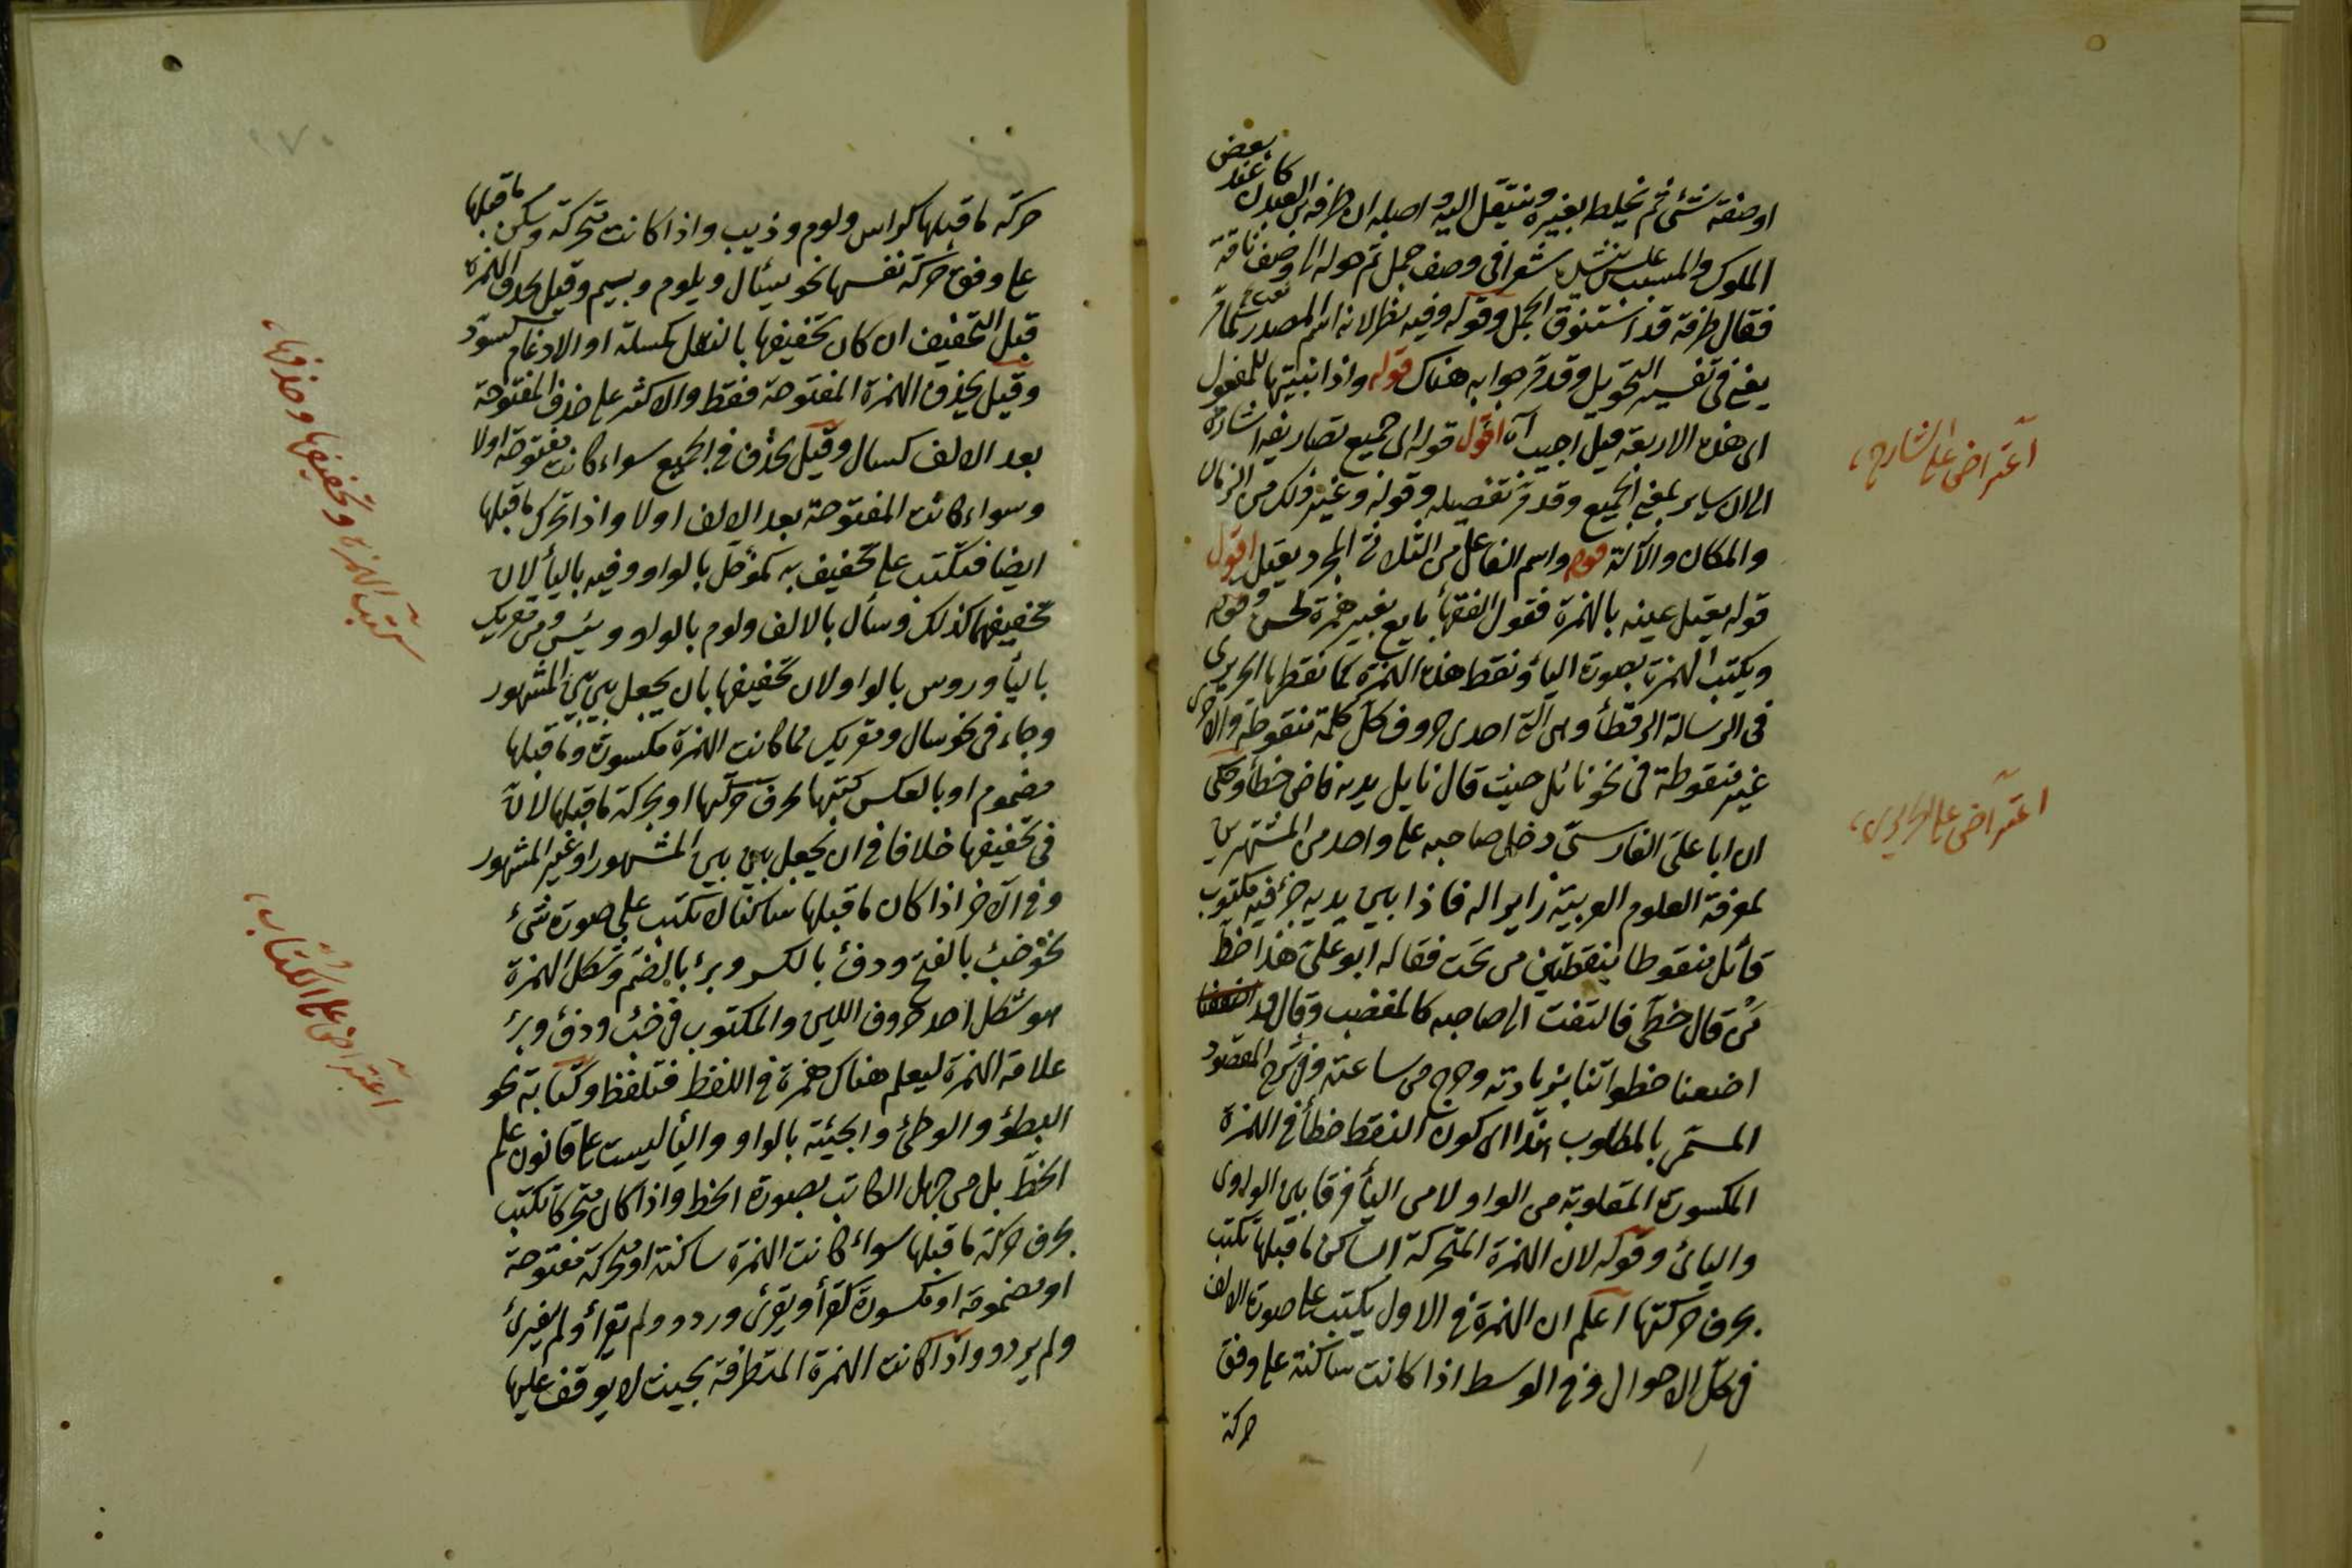 او صفة شئ ثم يخلط بغيره وينتقل اليه واصله ان طرفة بن العبد كان عند بعض
الملوك والمسيب بن علس ينشد شعرا في وصف جمل ثم حوله الى وصف ناقة
فقال طرفة قد استنوق الجمل وقوله وفيه نظر لانه اسم المصدر كما مر
يعني في تفسير التحويل وقد مر جوابه هناك قوله واذا بنيتها للمفعول
الى هذه الاربعة قيل اجيب آه اقول قوله الى جميع تصاريفه اشارة
الى ان ساير بمعنى الجميع وقد مر تفصيله وقوله وغير ذلك من الزمان
والمكان والآلة قوله واسم الفاعل من الثلاثي المجرد يعتل اقول
قوله يعتل عينه بالهمزة فقول الفقهاء بايع بغير همزة لحن وقوله
ويكتب الهمزة بصورة الياء ونقط هذه الهمزة كما نقطها الحريري
في الرسالة الرقطاء وهي التي احدى حروف كل كلمة منقوطة والاخرى
غير منقوطة في نحو نائل حيث قال نايل يديه فاض خطأ وحكي
ان ابا علي الفارسي دخل صاحبه على واحد من المشتهرين
بمعرفة العلوم العربية زايرا له فاذا بين يديه جزء فيه مكتوب
قائل منقوطا بنقطتين من تحت فقال له ابو علي هذا خط
من قال خطي فالتفت الى صاحبه كالمغضب وقال قد
اضعنا خطواتنا بزيارته وخرج من ساعته وفي شرح المقصود
المسمى بالمطلوب هذا اي كون النقط خطأ في الهمزة
المكسورة المقلوبة من الواو لا من الياء فرقا بين الواوي
واليائي وقوله لان الهمزة المتحركة الساكن ما قبلها تكتب
بحرف حركتها اعلم ان الهمزة في الاول يكتب على صورة الالف
في كل الاحوال وفي الوسط اذا كانت ساكنة على وفق
حركة
اعتراض على الشارح
اعتراض على الحريري
حركة ما قبلها كراس ولوم وذيب واذا كانت متحركة وسكن ما قبلها
على وفق حركة نفسها نحو يسئال ويلوم ويسيم وقيل يحذف الهمزة
قبل التخفيف ان كان تخفيفها بالنقل كمسلة او الادغام كسوة
وقيل يحذف الهمزة المفتوحة فقط والاكثر على حذف المفتوحة
بعد الالف كسال وقيل يحذف في الجميع سواء كانت مفتوحة اولا
وسواء كانت المفتوحة بعد الالف اولا واذا تحرك ما قبلها
ايضا فتكتب على تخفيف به كمؤجل بالواو وفيه بالياء لان
تخفيفها كذلك وسأل بالالف ولوم بالواو ويئس ومن مقريك
بالياء وروس بالواو لان تخفيفها بان يجعل بين بين المشهور
وجاء في نحو سال ومقريك مما كانت الهمزة مكسورة وما قبلها
مضموم او بالعكس كتبها بحرف حركتها او بحركة ما قبلها لان
في تخفيفها خلافا في ان يجعل بين بين المشهور او غير المشهور
وفي الآخر اذا كان ما قبلها ساكنا لا تكتب على صورة شئ
نحو خبئ بالفتح ودفئ بالكسر وبرئ بالضم وشكل الهمزة
هو شكل احد حروف اللين والمكتوب في خبئ ودفئ وبرئ
علامة الهمزة ليعلم هناك همزة في اللفظ فتلفظ وكتابة نحو
البطؤ والوطئ والجيئة بالواو والياء ليست على قانون علم
الخط بل من جهل الكاتب بصورة الخط واذا كان متحركا تكتب
بحرف حركة ما قبلها سواء كانت الهمزة ساكنة او متحركة مفتوحة
او مضمومة او مكسورة كقرأ ويقرئ وردو ولم يقرأ ولم يقرئ
ولم يردو واذا كانت الهمزة المتطرفة بحيث لا يوقف عليها
كتب الهمزة وتخفيفها وحذفها
اعتراض على الكتاب